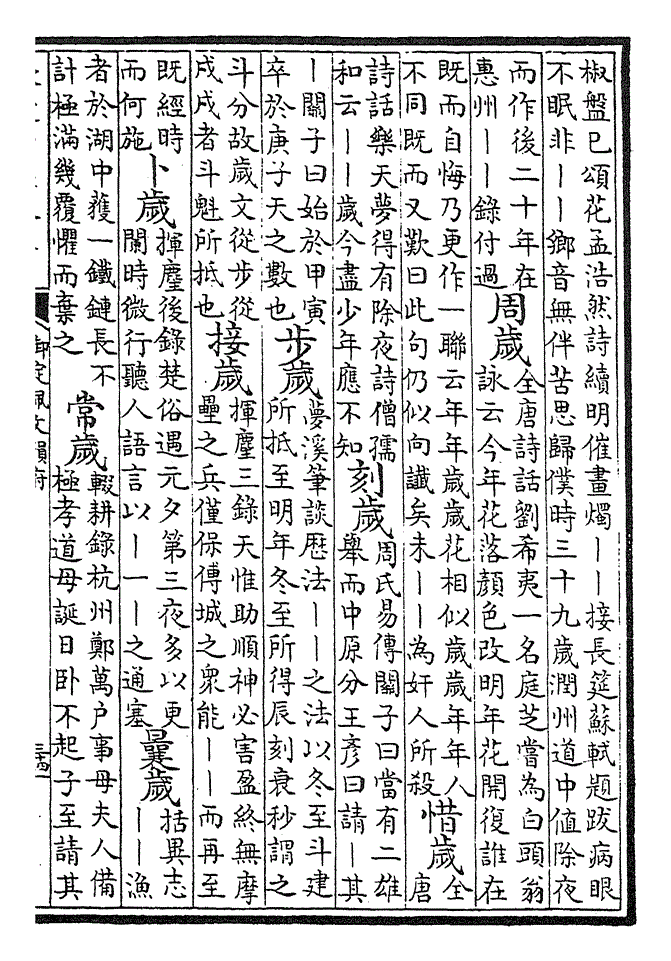 椒盤已頌花孟浩然詩續明催畫燭丨丨接長筵蘇軾題跋病眼
不眠非丨丨鄉音無伴苦思歸僕時三十九歲潤州道中值除夜
而作後二十年在
惠州丨丨錄付過
周歲
全唐詩話劉希夷一名庭芝嘗為白頭翁
詠云今年花落顏色改明年花開復誰在
既而自悔乃更作一聯云年年歲歲花相似歲歲年年人
不同既而又歎曰此句仍似向讖矣未丨丨為奸人所殺
惜歲
全
唐
詩話樂天夢得有除夜詩僧孺
和云丨丨歲今盡少年應不知
刻歲
周氏易傳關子曰當有二雄
舉而中原分王彥曰請丨其
丨關子曰始於甲寅
卒於庚子天之數也
步歲
夢溪筆談厯法丨丨之法以冬至斗建
所抵至明年冬至所得辰刻衰秒謂之
斗分故歲文從步從
戌戌者斗魁所抵也
接歲
揮麈三錄天惟助順神必害盈終無摩
壘之兵僅保傅城之衆能丨丨而再至
既經時
而何施
卜歲
揮麈後錄楚俗遇元夕第三夜多以更
闌時微行聽人語言以丨一丨之通塞
曩歲
括異志
丨丨漁
者於湖中獲一鐵鏈長不
計極滿幾覆懼而棄之
常歲
輟耕錄杭州鄭萬户事母夫人備
極孝道母誕日卧不起子至請其
御定佩文韻府